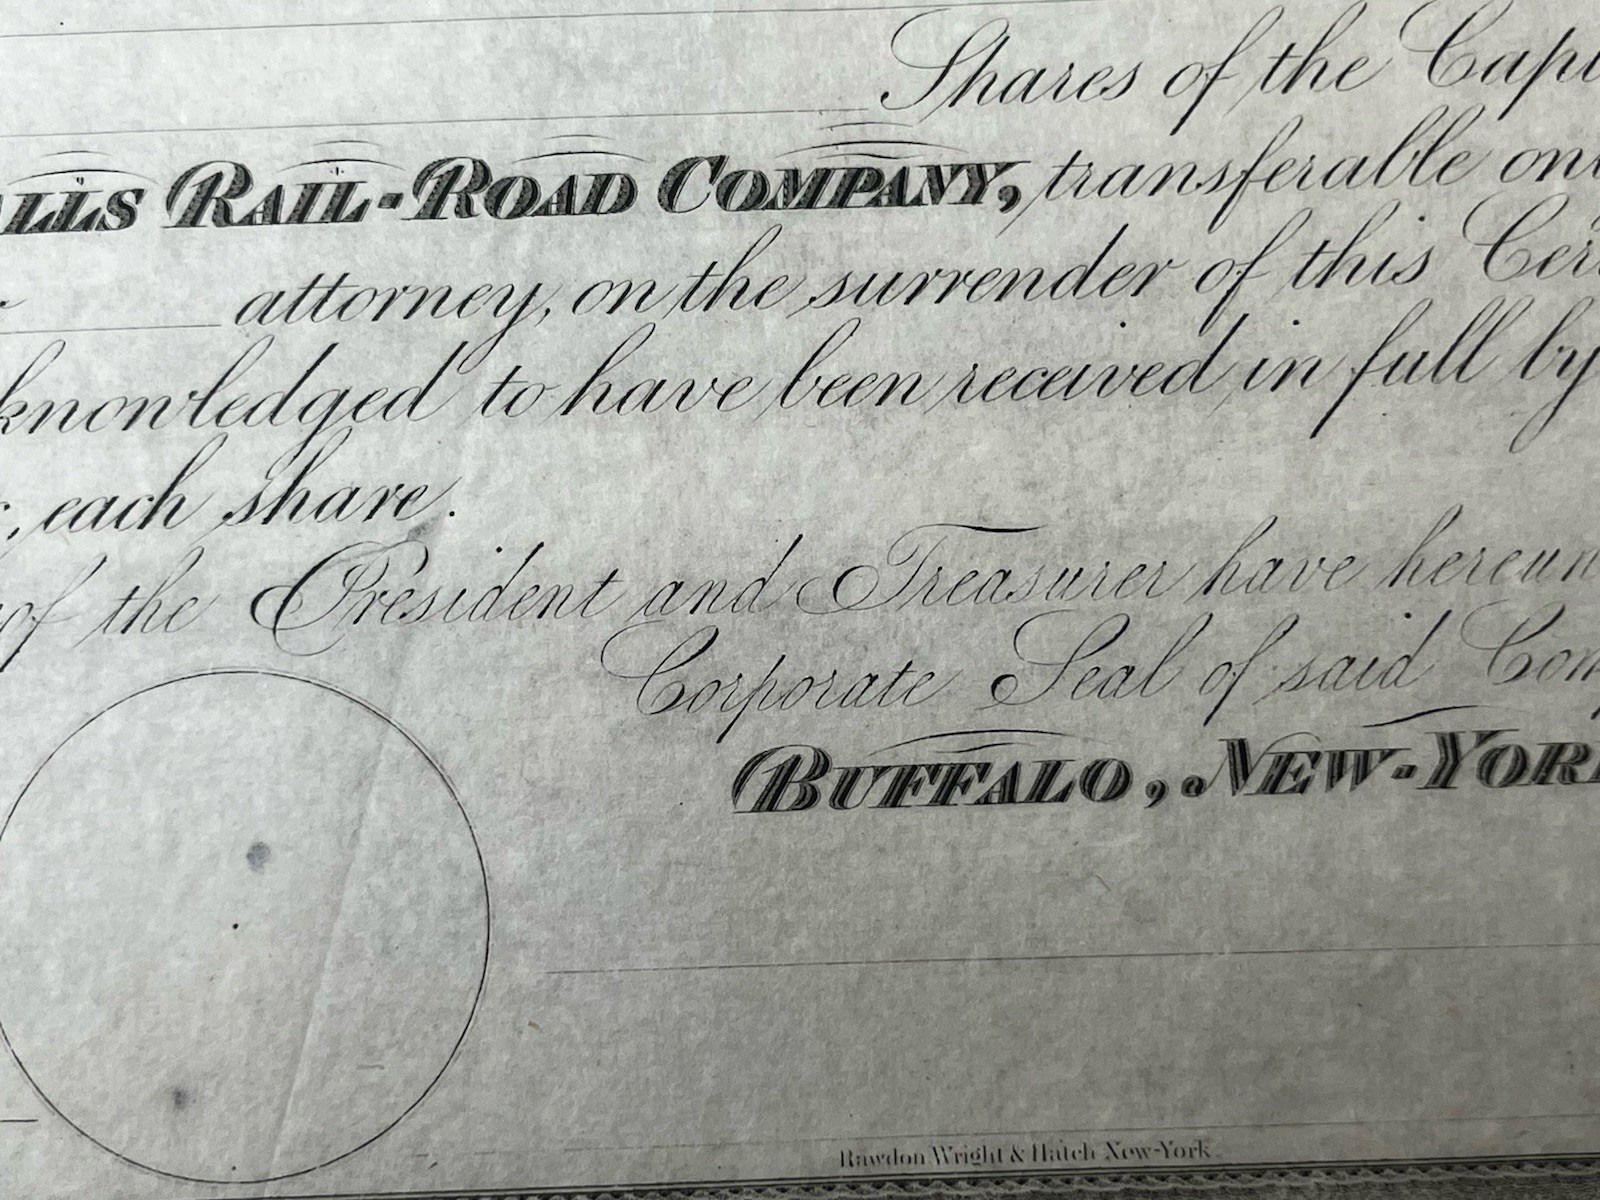 Shares of the Capi
alls Rail-Road Company, transferable on
attorney, on the surrender of this Cer
knowledged to have been received in full by
, each share.
of the President and Treasurer have hereun
Corporate Seal of said Com
Buffalo, New-York
Rawdon Wright & Hatch New-York.